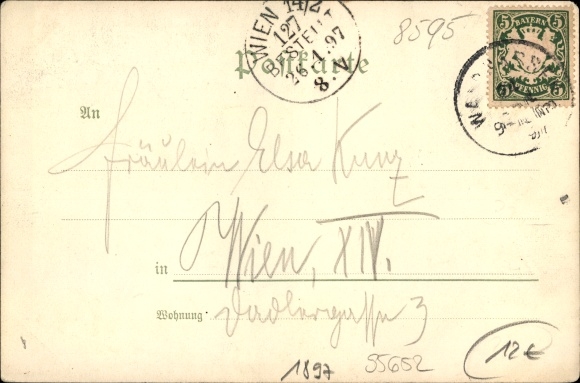 WIEN 14/2
127
BESTELLT
26.1.97
8.V
8595
BAYERN
5 5
5 PFENNIG 5
Postkarte
An
Fräulein Elsa Kunz
in Wien, XIV.
Wohnung Dadlergasse 3
1897
55652
12€